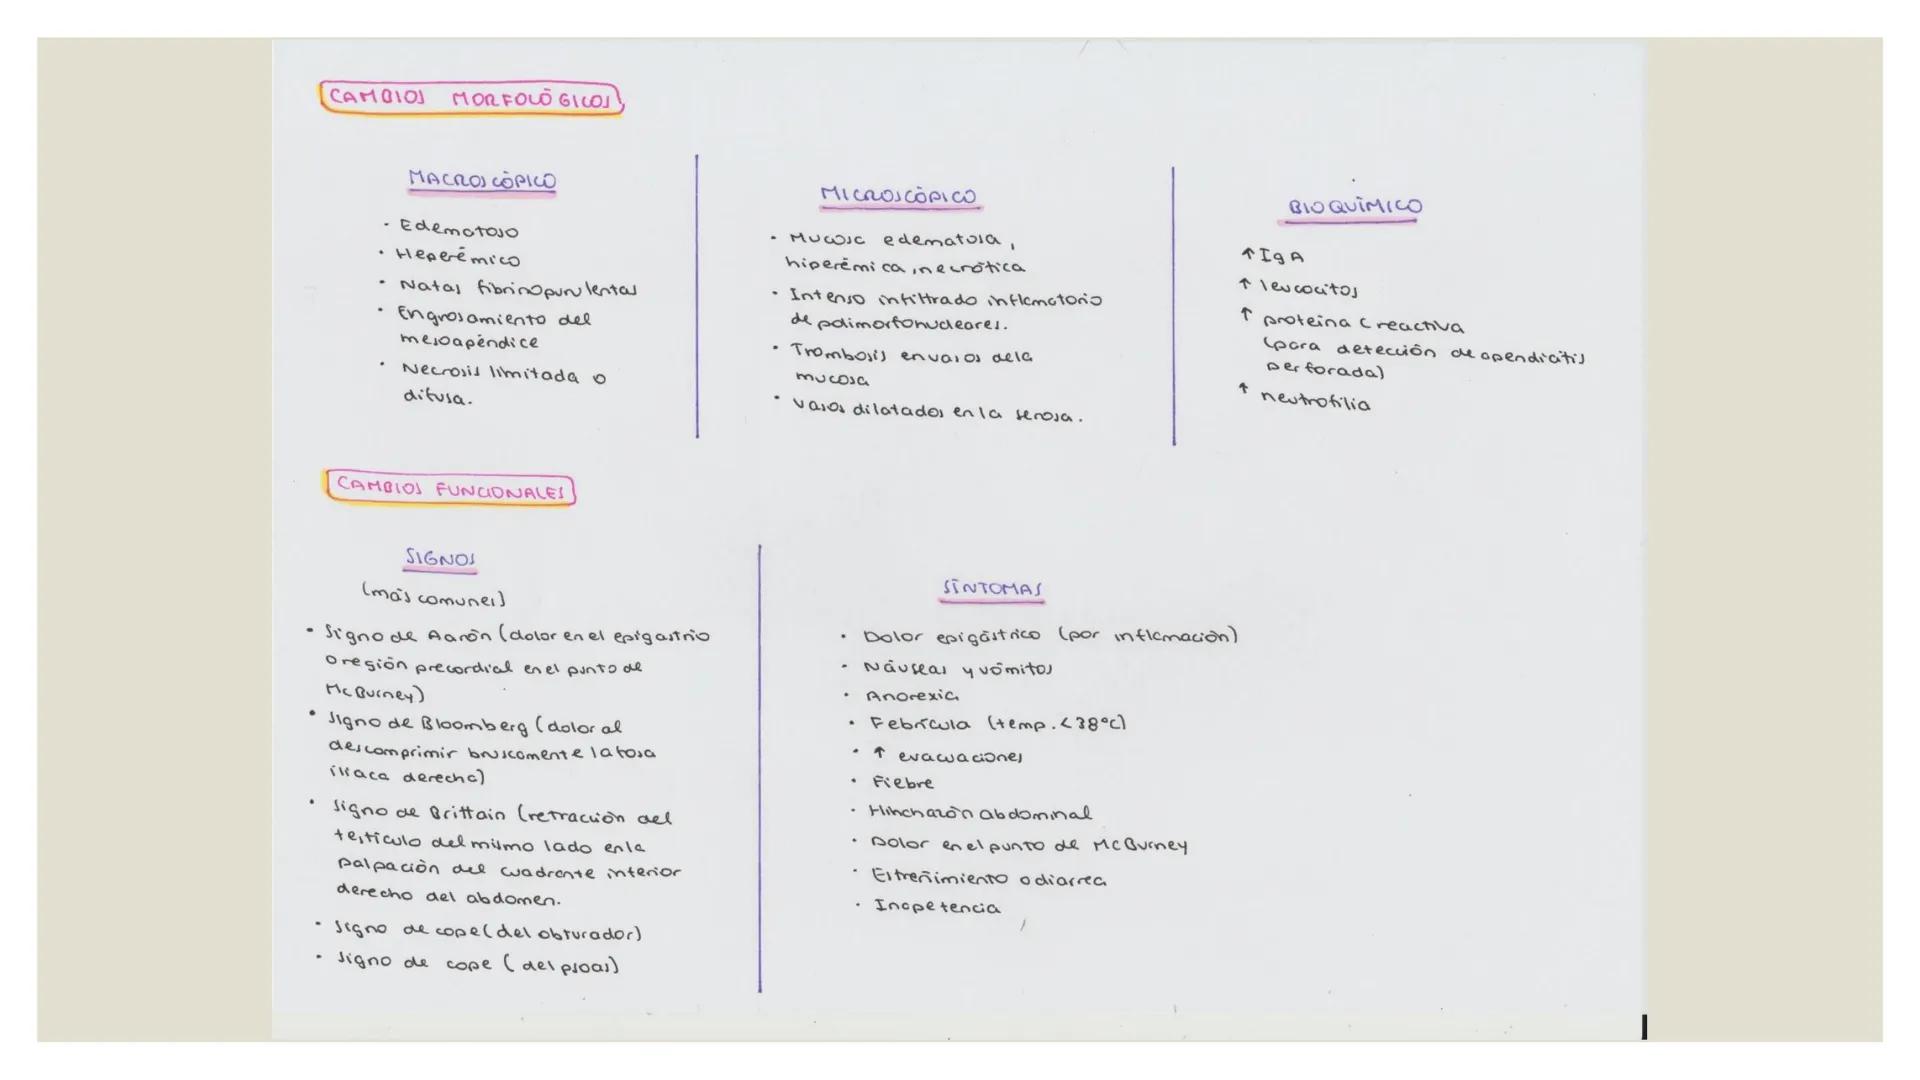 CAMBIOS MORFOLÓGICOS
MACROSCÓPICO
· Edematoso
· Heperémico
· Natas fibrinopurulentas
· Engrosamiento del
mesoapéndice
· Necrosis limitada o
difusa.
MICROSCÓPICO
· Mucosa edematosa,
hiperémica, necrótica
· Intenso infiltrado inflamatorio
de polimorfonucleares.
· Trombosis en vasos de la
mucosa
· Vasos dilatados en la serosa.
BIOQUÍMICO
↑ IgA
↑ leucocitos
↑ proteina C reactiva
(para detección de apendicitis
perforada)
↑ neutrofilia
CAMBIOS FUNCIONALES
SIGNOS
(más comunes)
· Signo de Aarón (dolor en el epigastrio
o región precordial en el punto de
McBurney)
· Signo de Bloomberg (dolor al
descomprimir bruscamente la fosa
iliaca derecha)
· Signo de Brittain (retracción del
testículo del mismo lado en la
palpación del cuadrante inferior
derecho del abdomen.
· Signo de cope (del obturador)
· Signo de cope (del psoas)
SÍNTOMAS
· Dolor epigástrico (por inflamación)
· Náuseas y vómitos
· Anorexia
· Febrícula (temp. <38°C)
· ↑ evacuaciones
· Fiebre
· Hinchazón abdominal
· Dolor en el punto de McBurney
· Estreñimiento o diarrea
· Inapetencia